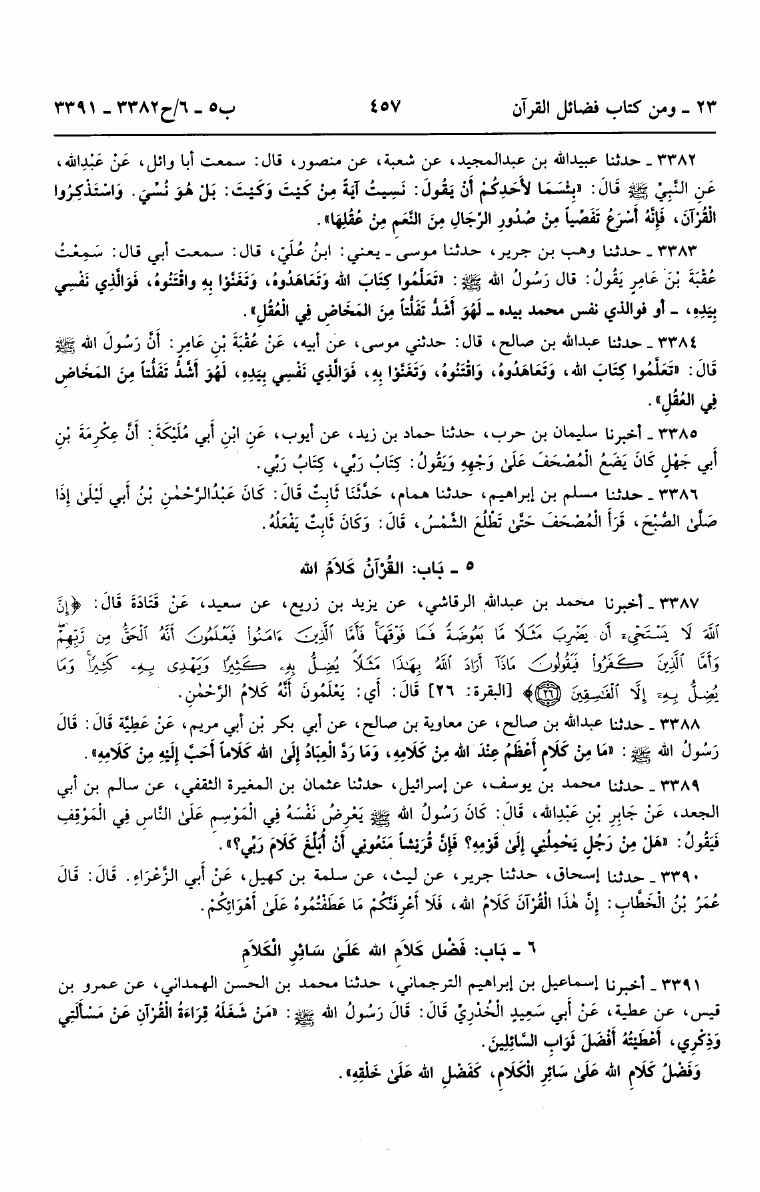 ٢٣ ـ ومن كتاب فضائل القرآن ٤٥٧ ب٥ ـ ٦/ح٣٣٨٢ ـ ٣٣٩١
٣٣٨٢ ـ حدثنا عبيدالله بن عبدالمجيد، عن شعبة، عن منصور، قال: سمعت أبا وائل، عَنْ عَبْدِالله،
عَنِ النَّبِيِّ ﷺ قَالَ: «بِئْسَمَا لأَحَدِكُمْ أَنْ يَقُولَ: نَسِيتُ آيَةً مِنْ كَيْتَ وَكَيْتَ: بَلْ هُوَ نُسِّيَ. وَاسْتَذْكِرُوا
الْقُرْآنَ، فَإِنَّهُ أَسْرَعُ تَفَصِّياً مِنْ صُدُورِ الرِّجَالِ مِنَ النَّعَمِ مِنْ عُقُلِهَا».
٣٣٨٣ ـ حدثنا وهب بن جرير، حدثنا موسى ـ يعني: ابنُ عُلَيّ، قال: سمعت أبي قال: سَمِعْتُ
عُقْبَةَ بْنَ عَامِرٍ يَقُولُ: قال رَسُولُ الله ﷺ: «تَعَلَّمُوا كِتَابَ الله وَتَعَاهَدُوهُ، وَتَغَنَّوْا بِهِ واقْتَنُوهُ، فَوَالَّذِي نَفْسِي
بِيَدِهِ، ـ أو فوالذي نفس محمد بيده ـ لَهُوَ أَشَدُّ تَفَلُّتاً مِنَ المَخَاضِ فِي الْعُقُلِ».
٣٣٨٤ ـ حدثنا عبدالله بن صالح، قال: حدثني موسى، عن أبيه، عَنْ عُقْبَةَ بْنِ عَامِرٍ: أَنَّ رَسُولَ الله ﷺ
قَالَ: «تَعَلَّمُوا كِتَابَ الله، وَتَعَاهَدُوهُ، وَاقْتَنُوهُ، وَتَغَنَّوْا بِهِ، فَوَالَّذِي نَفْسِي بِيَدِهِ، لَهُوَ أَشَدُّ تَفَلُّتاً مِنَ المَخَاضِ
فِي العُقُلِ».
٣٣٨٥ ـ أخبرنا سليمان بن حرب، حدثنا حماد بن زيد، عن أيوب، عَنِ ابْنِ أَبِي مُلَيْكَةَ: أَنَّ عِكْرِمَةَ بْنِ
أَبِي جَهْلٍ كَانَ يَضَعُ الْمُصْحَفَ عَلَىٰ وَجْهِهِ وَيَقُولُ: كِتَابُ رَبِّي، كِتَابُ رَبِّي.
٣٣٨٦ ـ حدثنا مسلم بن إبراهيم، حدثنا همام، حَدَّثَنَا ثَابِتٌ قَالَ: كَانَ عَبْدُالرَّحْمٰنِ بْنُ أَبِي لَيْلَىٰ إِذَا
صَلَّىٰ الصُّبْحَ، قَرَأَ الْمُصْحَفَ حَتَّىٰ تَطْلُعَ الشَّمْسُ، قَالَ: وَكَانَ ثَابِتٌ يَفْعَلُهُ.
٥ ـ بَاب: القُرْآنُ كَلاَمُ الله
٣٣٨٧ ـ أخبرنا محمد بن عبدالله الرقاشي، عن يزيد بن زريع، عن سعيد، عَنْ قَتَادَةَ قَالَ: ﴿إِنَّ
ٱللَّهَ لَا يَسْتَحْىِۦٓ أَن يَضْرِبَ مَثَلًا مَّا بَعُوضَةً فَمَا فَوْقَهَا فَأَمَّا ٱلَّذِينَ ءَامَنُوا۟ فَيَعْلَمُونَ أَنَّهُ ٱلْحَقُّ مِن رَّبِّهِمْ
وَأَمَّا ٱلَّذِينَ كَفَرُوا۟ فَيَقُولُونَ مَاذَآ أَرَادَ ٱللَّهُ بِهَٰذَا مَثَلًا يُضِلُّ بِهِۦ كَثِيرًا وَيَهْدِى بِهِۦ كَثِيرًا وَمَا
يُضِلُّ بِهِۦٓ إِلَّا ٱلْفَٰسِقِينَ ٢٦﴾ [البقرة: ٢٦] قَالَ: أَي: يَعْلَمُونَ أَنَّهُ كَلامُ الرَّحْمٰنِ.
٣٣٨٨ ـ حدثنا عبدالله بن صالح، عن معاوية بن صالح، عن أبي بكر بْن أبي مريم، عَنْ عَطِيَّة قَالَ: قَالَ
رَسُولُ الله ﷺ: «مَا مِنْ كَلَامٍ أَعْظَمُ عِنْدَ الله مِنْ كَلَامِهِ، وَمَا رَدَّ الْعِبَادُ إِلَىٰ الله كَلَاماً أَحَبَّ إِلَيْهِ مِنْ كَلَامِهِ».
٣٣٨٩ ـ حدثنا محمد بن يوسف، عن إسرائيل، حدثنا عثمان بن المغيرة الثقفي، عن سالم بن أبي
الجعد، عَنْ جَابِرِ بْنِ عَبْدِالله، قَالَ: كَانَ رَسُولُ الله ﷺ يَعْرِضُ نَفْسَهُ فِي الْمَوْسِمِ عَلَىٰ النَّاسِ فِي الْمَوْقِفِ
فَيَقُولُ: «هَلْ مِنْ رَجُلٍ يَحْمِلُنِي إِلَىٰ قَوْمِهِ؟ فَإِنَّ قُرَيْشاً مَنَعُونِي أَنْ أُبَلِّغَ كَلَامَ رَبِّي؟».
٣٣٩٠ ـ حدثنا إسحاق، حدثنا جرير، عن ليث، عن سلمة بن كهيل، عَنْ أَبِي الزَّعْرَاءِ. قَالَ: قَالَ
عُمَرُ بْنُ الْخَطَّابِ: إِنَّ هٰذَا الْقُرْآنَ كَلَامُ الله، فَلَا أَعْرِفَنَّكُمْ مَا عَطَفْتُمُوهُ عَلَىٰ أَهْوَائِكُمْ.
٦ ـ بَاب: فَضْل كَلاَمِ الله عَلَىٰ سَائِرِ الْكَلاَمِ
٣٣٩١ ـ أخبرنا إسماعيل بن إبراهيم الترجماني، حدثنا محمد بن الحسن الهمداني، عن عمرو بن
قيس، عن عطية، عَنْ أَبِي سَعِيدٍ الْخُدْرِيِّ قَالَ: قَالَ رَسُولُ الله ﷺ: «مَنْ شَغَلَهُ قِرَاءَةُ الْقُرْآنِ عَنْ مَسْأَلَتِي
وَذِكْرِي، أَعْطَيْتُهُ أَفْضَلَ ثَوَابِ السَّائِلِينَ.
وَفَضْلُ كَلَامِ الله عَلَىٰ سَائِرِ الْكَلَامِ، كَفَضْلِ الله عَلَىٰ خَلْقِهِ».